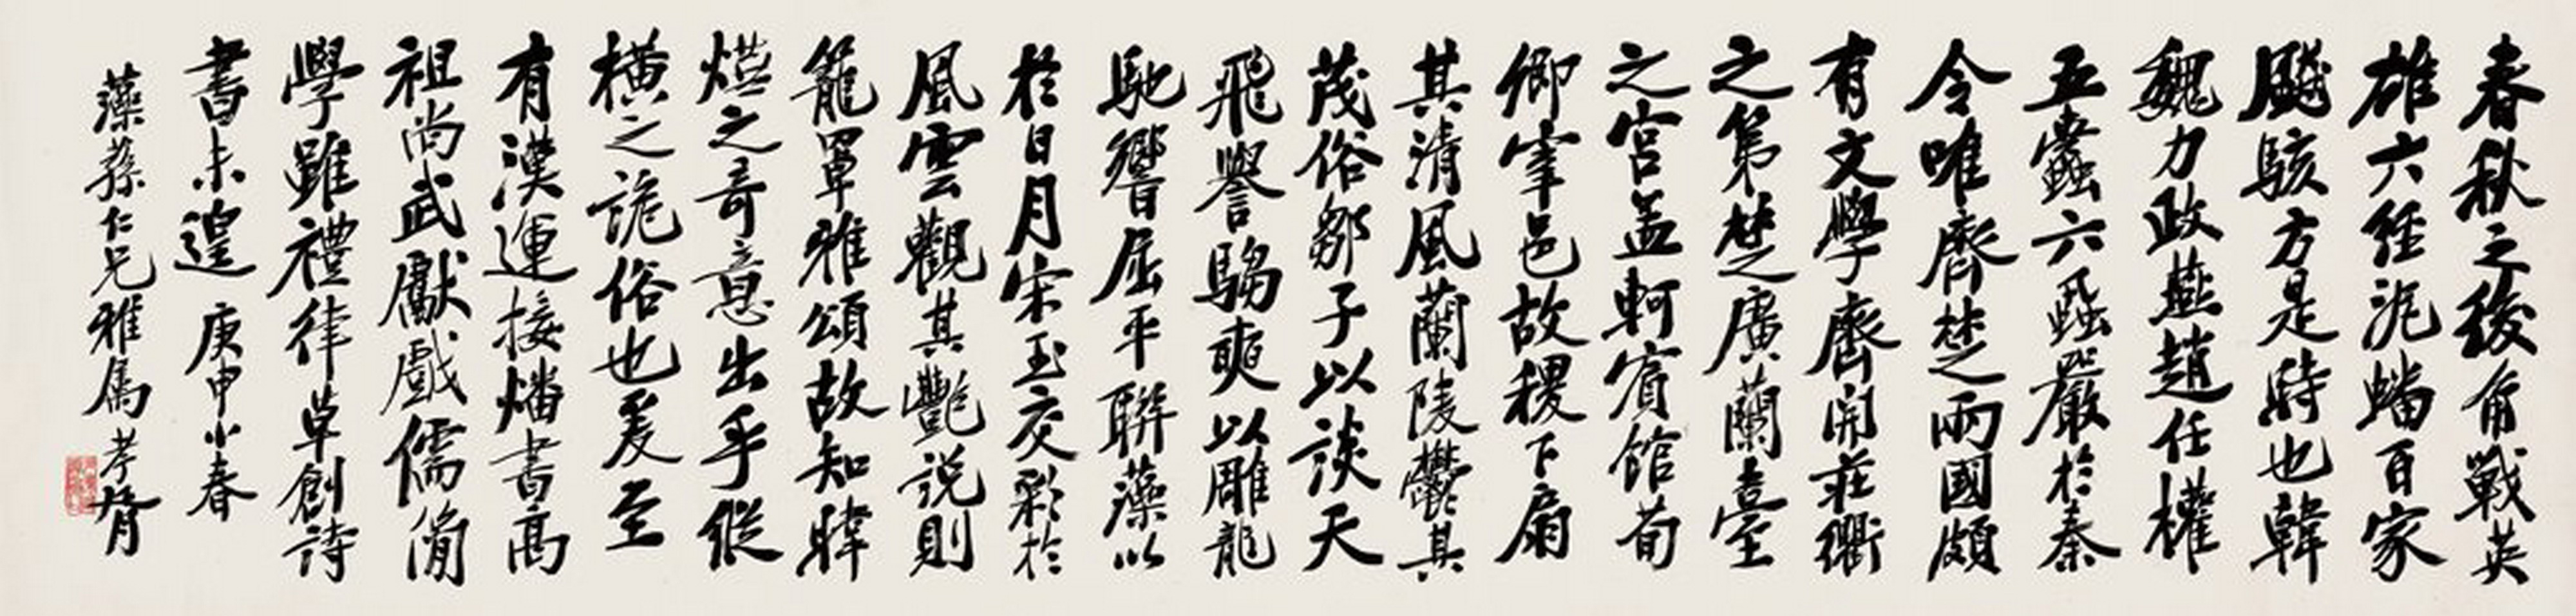 春秋之後角戰英
雄六經泥蟠百家
飈駭方是時也韓
魏力政燕趙任權
五蠹六蝨嚴於秦
令唯齊楚兩國頗
有文學齊開莊衢
之第楚廣蘭臺
之宮孟軻賓館荀
卿宰邑故稷下扇
其清風蘭陵鬱其
茂俗鄒子以談天
飛譽騶奭以雕龍
馳響屈平聯藻以
於日月宋玉交彩於
風雲觀其豔説則
籠罩雅頌故知暐
燁之奇意出乎縱
橫之詭俗也爰至
有漢運接燔書高
祖尚武獻戲儒簡
學雖禮律草創詩
書未遑 庚申小春
藻蓀仁兄雅屬 孝胥